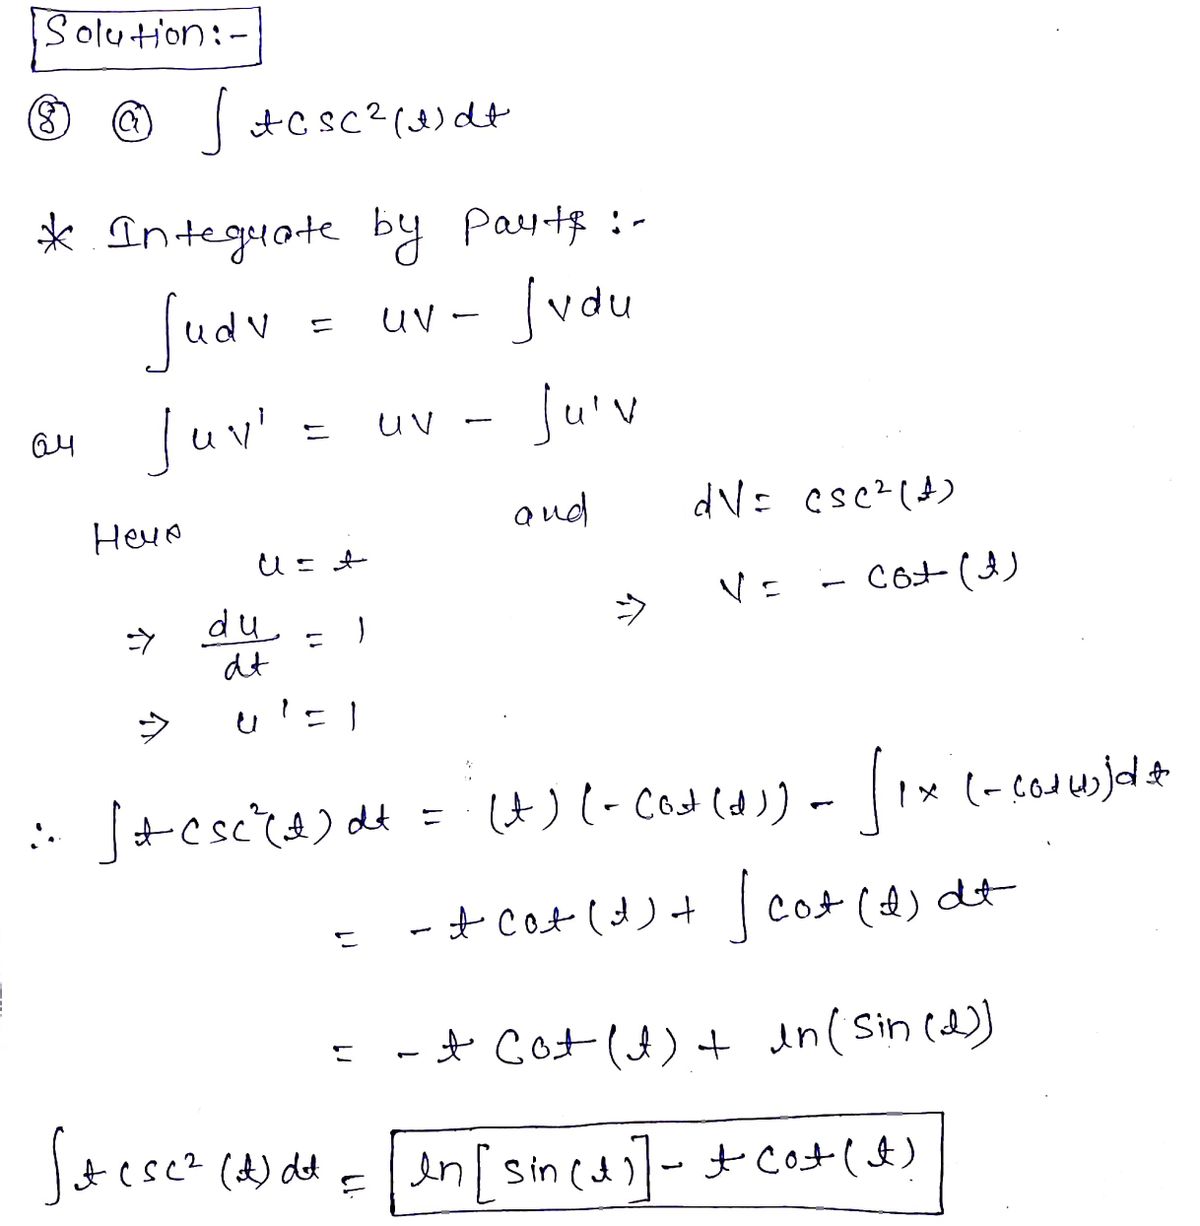 Solution:-
⑧ ⓐ ∫ t csc²(t) dt
* Integrate by Parts :-
∫ u dv = uv - ∫ v du
or ∫ u v' = uv - ∫ u' v
Here and dV = csc²(t)
u = t
⇒ V = - cot(t)
⇒ du/dt = 1
⇒ u' = 1
∴ ∫ t csc²(t) dt = (t) (- cot(t)) - ∫ 1 × (- cot(t)) dt
= - t cot(t) + ∫ cot(t) dt
= - t cot(t) + ln(sin(t))
∫ t csc²(t) dt = ln[sin(t)] - t cot(t)